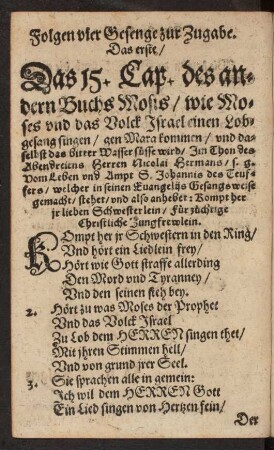 Folgen vier Gesenge zur Zugabe.
Das erste/
Das 15. Cap. des an-
dern Buchs Mosis/ wie Mo-
ses vnd das Volck Israel einen Lob-
gesang singen/ gen Mara kommen/ vnd da-
selbst das bitter Wasser süsse wird/ Im Thon des
Abendreiens Herren Nicolai Hermans/ s. g.
Vom Leben vnd Ampt S. Johannis des Teuf-
fers/ welcher in seinen Euangelijs Gesangs weise
gemacht/ stehet/ vnd also anhebet: Kompt her
jr lieben Schwesterlein/ Für züchtige
Christliche Jungfrewlein.
KOmpt her jr Schwestern in den Ring/
Vnd hört ein Liedlein frey/
Hört wie Gott straffe allerding
Den Mord vnd Tyranney/
Vnd den seinen steh bey.
2. Hört zu was Moses der Prophet
Vnd das Volck Israel
Zu Lob dem HERREN singen thet/
Mit jhren Stimmen hell/
Vnd von grund jrer Seel.
3. Sie sprachen alle in gemein:
Ich wil dem HERREN Gott
Ein Lied singen von Hertzen fein/
Der